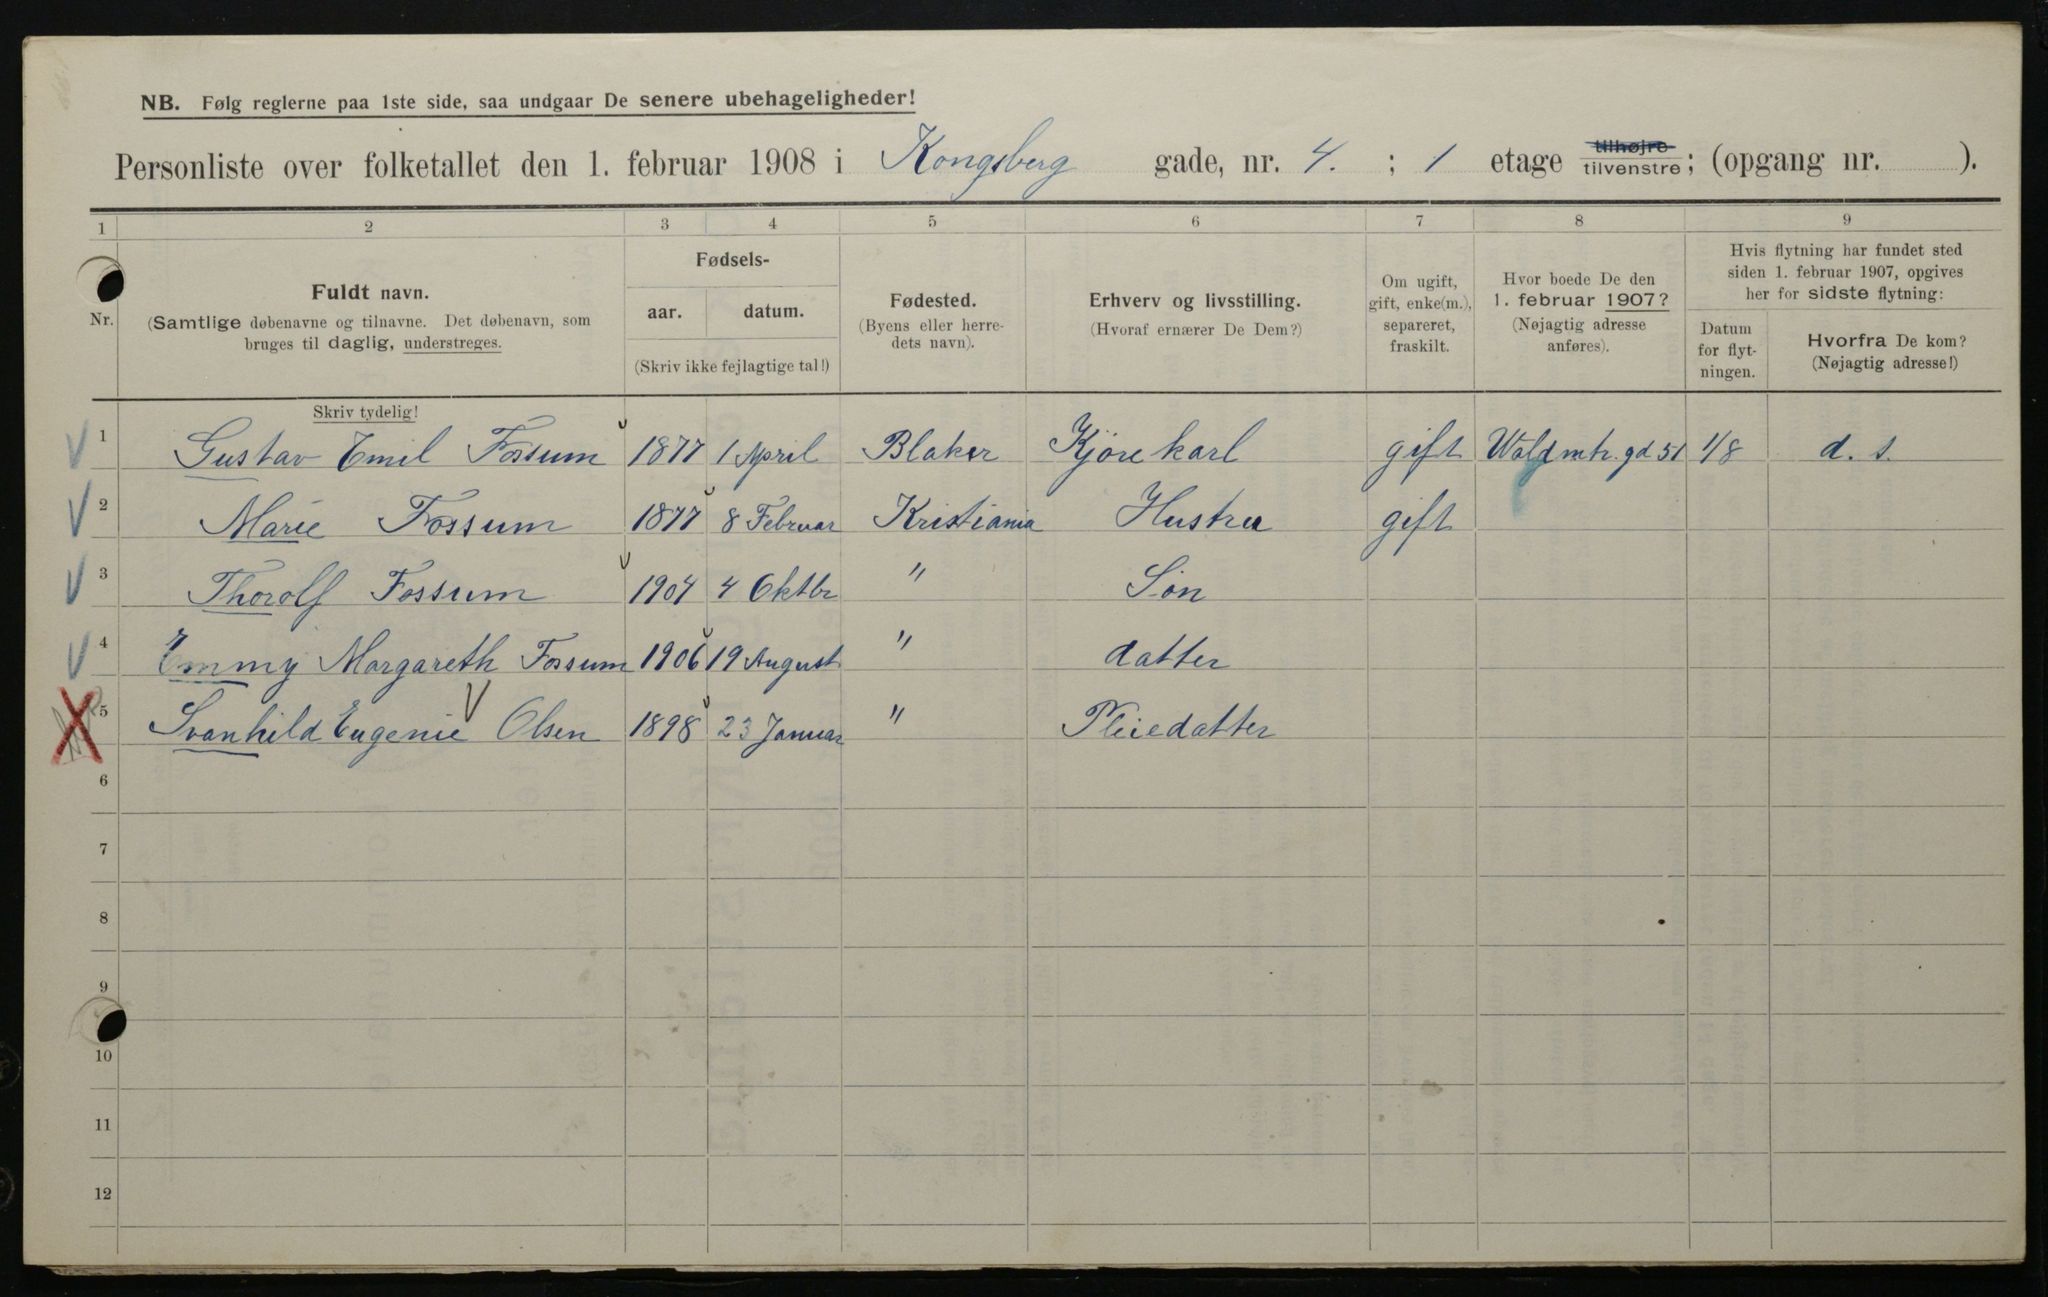 NB. Følg reglerne paa 1ste side, saa undgaar De senere ubehageligheder!
Personliste over folketallet den 1. februar 1908 i Kongsberg gade, nr. 4. ; 1 etage tilhøjre tilvenstre; (opgang nr. ).
1 2 3 4 5 6 7 8 9
Nr.
Fuldt navn.
(Samtlige døbenavne og tilnavne. Det døbenavn, som
bruges til daglig, understreges.
Fødsels-
aar. datum.
(Skriv ikke fejlagtige tal!)
Fødested.
(Byens eller herre-
dets navn).
Erhverv og livsstilling.
(Hvoraf ernærer De Dem?)
Om ugift,
gift, enke(m.),
separeret,
fraskilt.
Hvor boede De den
1. februar 1907?
(Nøjagtig adresse
anføres).
Hvis flytning har fundet sted
siden 1. februar 1907, opgives
her for sidste flytning:
Datum
for flyt-
ningen.
Hvorfra De kom?
(Nøjagtig adresse!)
Skriv tydelig!
1 Gustav Emil Fossum 1877 1 April Blaker Kjørekarl gift Waldmtr. gd 51 1/8 d. s.
2 Marie Fossum 1877 8 Februar Kristiania Hustru gift
3 Thorolf Fossum 1904 4 Oktbr " Søn
4 Emmy Margareth Fossum 1906 19 August " datter
5 Svanhild Eugenie Olsen 1898 23 Januar " Pleiedatter
6
7
8
9
10
11
12